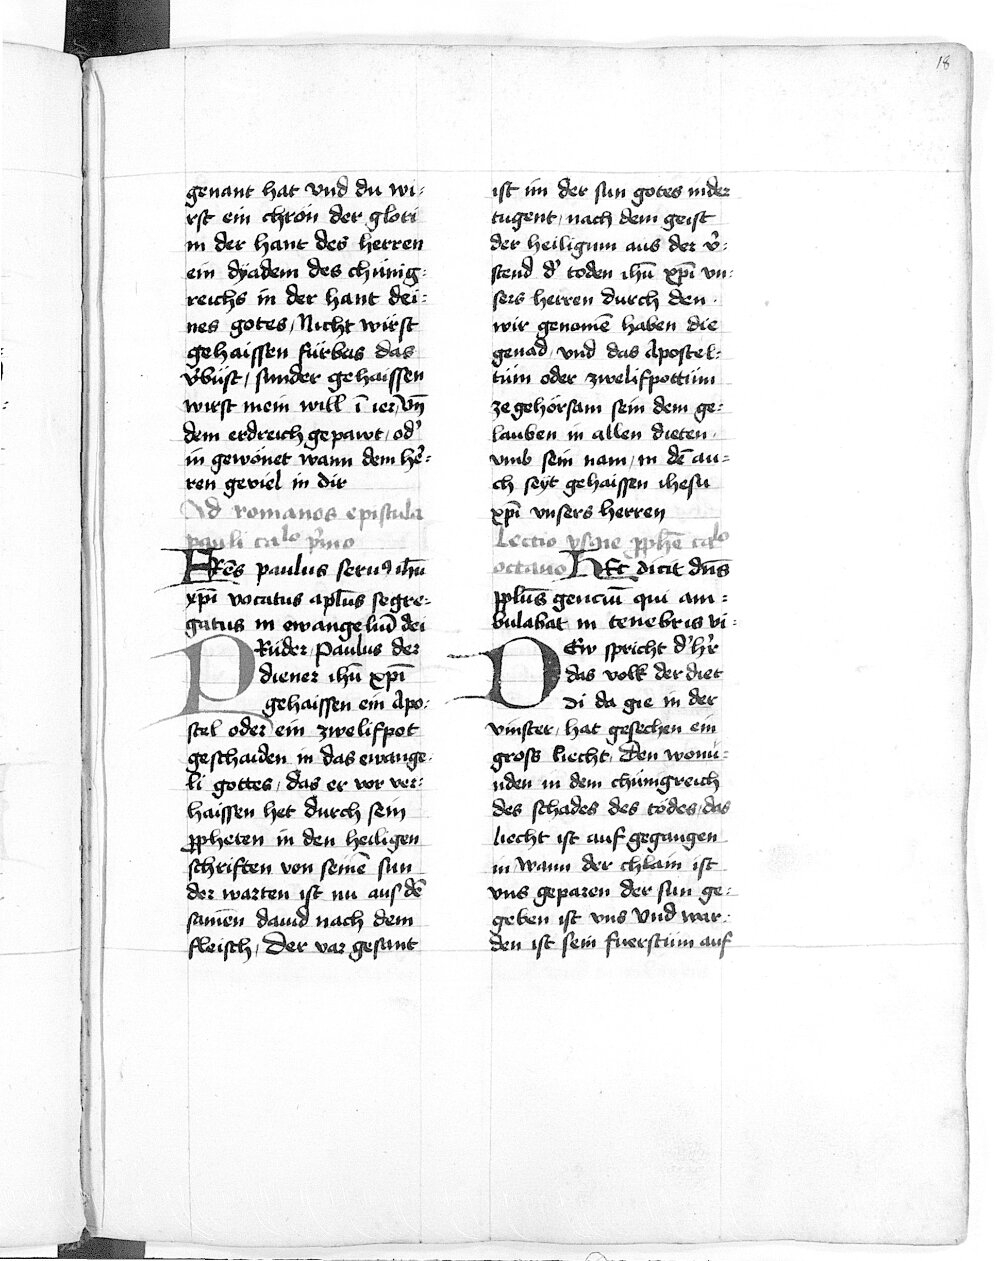 18
genant hat vnd du wi:
rst ein chron der glori
in der hant des herren
ein dyadem des chünig:
reichs in der hant dei:
nes gotes / Nicht wirst
gehaissen fürbas das
v̄büst / sunder gehaissen
wirst mein will ī ier / vn̄
dem erdreich gepawt / od'
in gewonet wann dem he᷑:
ren geviel in dir
Ad romanos epistula
pauli calo p̄mo
FRēs paulus seruꝰ ihū
xp̄i vocatus apl̄us segre:
gatus in ewangeliū dei
BRüder Paulus der
diener ihū xp̄i
gehaissen ein Apo:
stel oder ein zwelifpot
geschaiden in das ewange:
li gottes / das er vor ver:
haissen het durch sein
ꝓpheten in den heiligen
schriften von seinē sun
der warten ist nu aus dē
samen dauid nach dem
fleisch / Der var gesant
ist im der sun gotes in der
tugent / nach dem geist
der heiligum aus der v᷑:
stend d' toden ihū xp̄i vn:
sers herren durch den
wir genomē haben die
genad / vnd das Apostel:
tüm oder zwelifpottüm
ze gehörsam sein dem ge:
lauben in allen dieten
vmb sein nam / in dē au:
ch seyt gehaissen ihesu
xp̄i vnsers herren
Lectio ysaie ꝓphē calo
octauo HEc dicit dn̄s
pp̄lus genciū qui am:
bulabat in tenebris vi:
DEr spricht d' h᷑r
das volk der diet
Di da gie in der
vinster / hat gesechen ein
gross liecht / Den wonu:
nden in dem chünigreich
des schades des todes / das
liecht ist auf gegangen
in / wann der chlain ist
vns geparen der sun ge:
geben ist vns Vnd war:
den ist sein fuerstüm auf